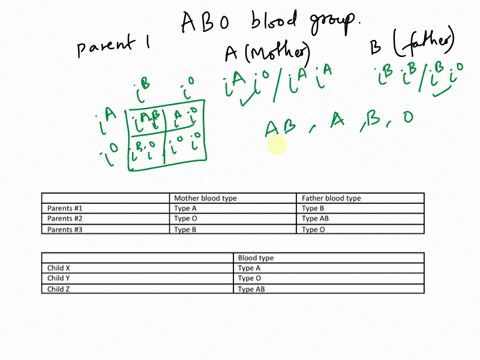 ABO blood group.
Parent 1 A (Mother) B (father)
i^A i^O / i^A i^A i^B i^B / i^B i^O
i^B i^O
i^A i^A i^B i^A i^O
i^O i^B i^O i^O i^O
AB, A, B, O
Mother blood type Father blood type
Parents #1 Type A Type B
Parents #2 Type O Type AB
Parents #3 Type B Type O
Blood type
Child X Type A
Child Y Type O
Child Z Type AB